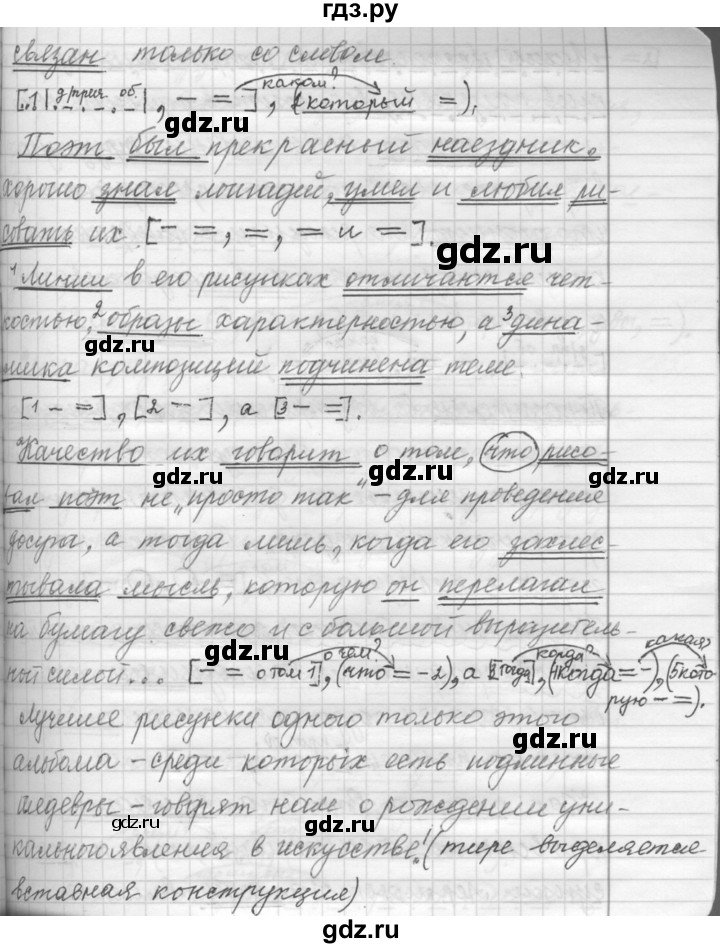 гдз.ру
связан только со словом
[..1|д/прич. об.|, – =], (который =),
какой?
gdz.ru
Поэт был прекрасный наездник.
хорошо знал лошадей, умел и любил ри-
совать их. [– =, =, = и =].
gdz.ru
1Линии в его рисунках отличаются чет-
костью, 2образы характерностью, а 3дина-
gdz.ru
мика композиций подчинена теме.
[1 – =], [2 –], а [3 – =].
gdz.ru
Качество их говорит о том, что рисо-
вал поэт не „просто так" – для проведения
gdz.ru
досуга, а тогда лишь, когда его захлес-
тывала мысль, которую он перелагал
на бумагу свежо и с большой выразитель-
gdz.ru
о чём? когда? какая?
ной силой... [– = о том 1], (что = – 2), а [тогда], (4когда = –), (5кото-
рую – =).
Лучшие рисунки одного только этого
gdz.ru
альбома – среди которых есть подлинные
шедевры – говорят нам о рождении уни-
gdz.ru
gdz.ru
кального явления в искусстве! (тире выделяется
вставная конструкция)
gdz.ru